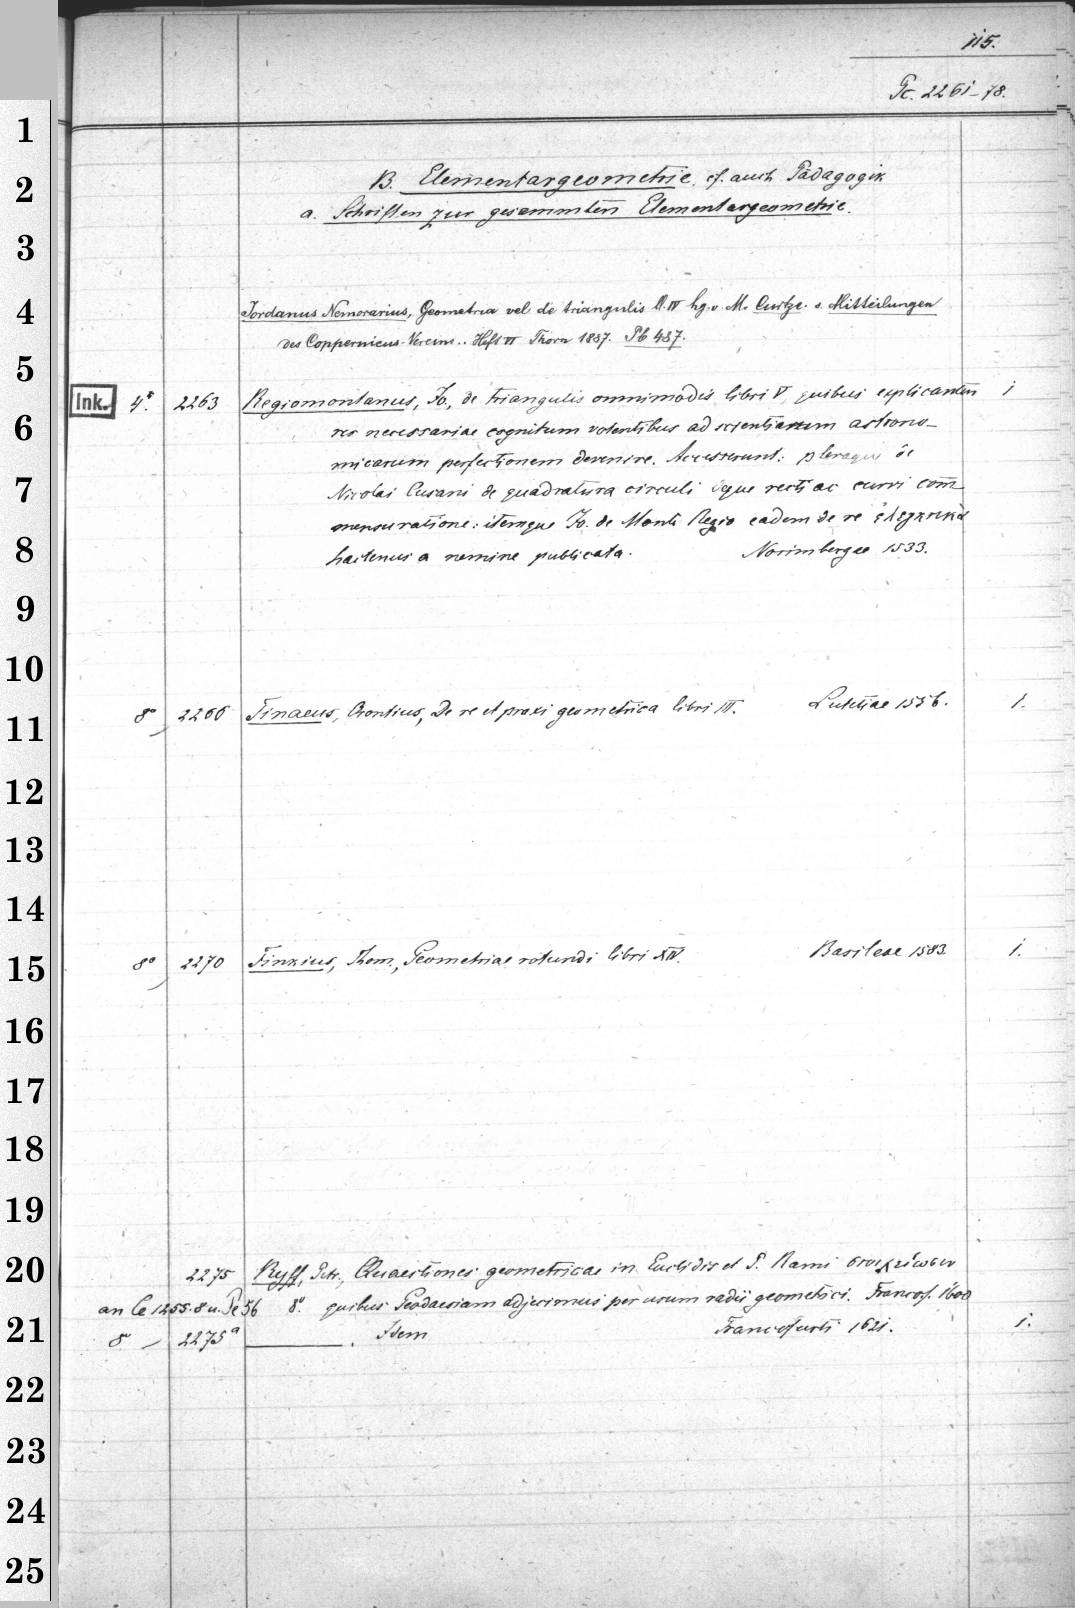 115.
Pc. 2261-78.
B. Elementargeometrie. cf. auch Pädagogik
a. Schriften zur gesammten Elementargeometrie.
Jordanus Nemorarius, Geometria vel de triangulis ll. IV hg. v. M. Curtze. s. Mitteilungen
des Coppernicus-Vereins.. Heft VI Thorn 1887. Pb 487.
Ink. 4° 2263 Regiomontanus, Jo., de triangulis omnimodis libri V, quibus explicantur 1
res necessariae cognitum volentibus ad scientiarum astrono-
micarum perfectionem devenire. Accesserunt: pleraque de
Nicolai Cusani de quadratura circuli que recti ac curvi com̄
mensuratione: itemque Jo. de Monte Regio eadem de re ἐλεγκτικά
hactenus a nemine publicata. Norimbergae 1533.
8° 2266 Finaeus, Orontius, De re et praxi geometrica libri III. Lutetiae 1556. 1.
8° 2270 Finkius, Thom., Geometriae rotundi libri XIV. Basileae 1583 1.
2275 Ryff, Petr., Quaestiones geometricae in Euclidis et P. Rami στοιχείωσιν
an Ce 1255. 8 u. Pe 56 8° quibus Geodaesiam adjecimus per usum radii geometrici. Francof. 1600
8° 2275a ———. Idem Francofurti 1621. 1.
1
2
3
4
5
6
7
8
9
10
11
12
13
14
15
16
17
18
19
20
21
22
23
24
25